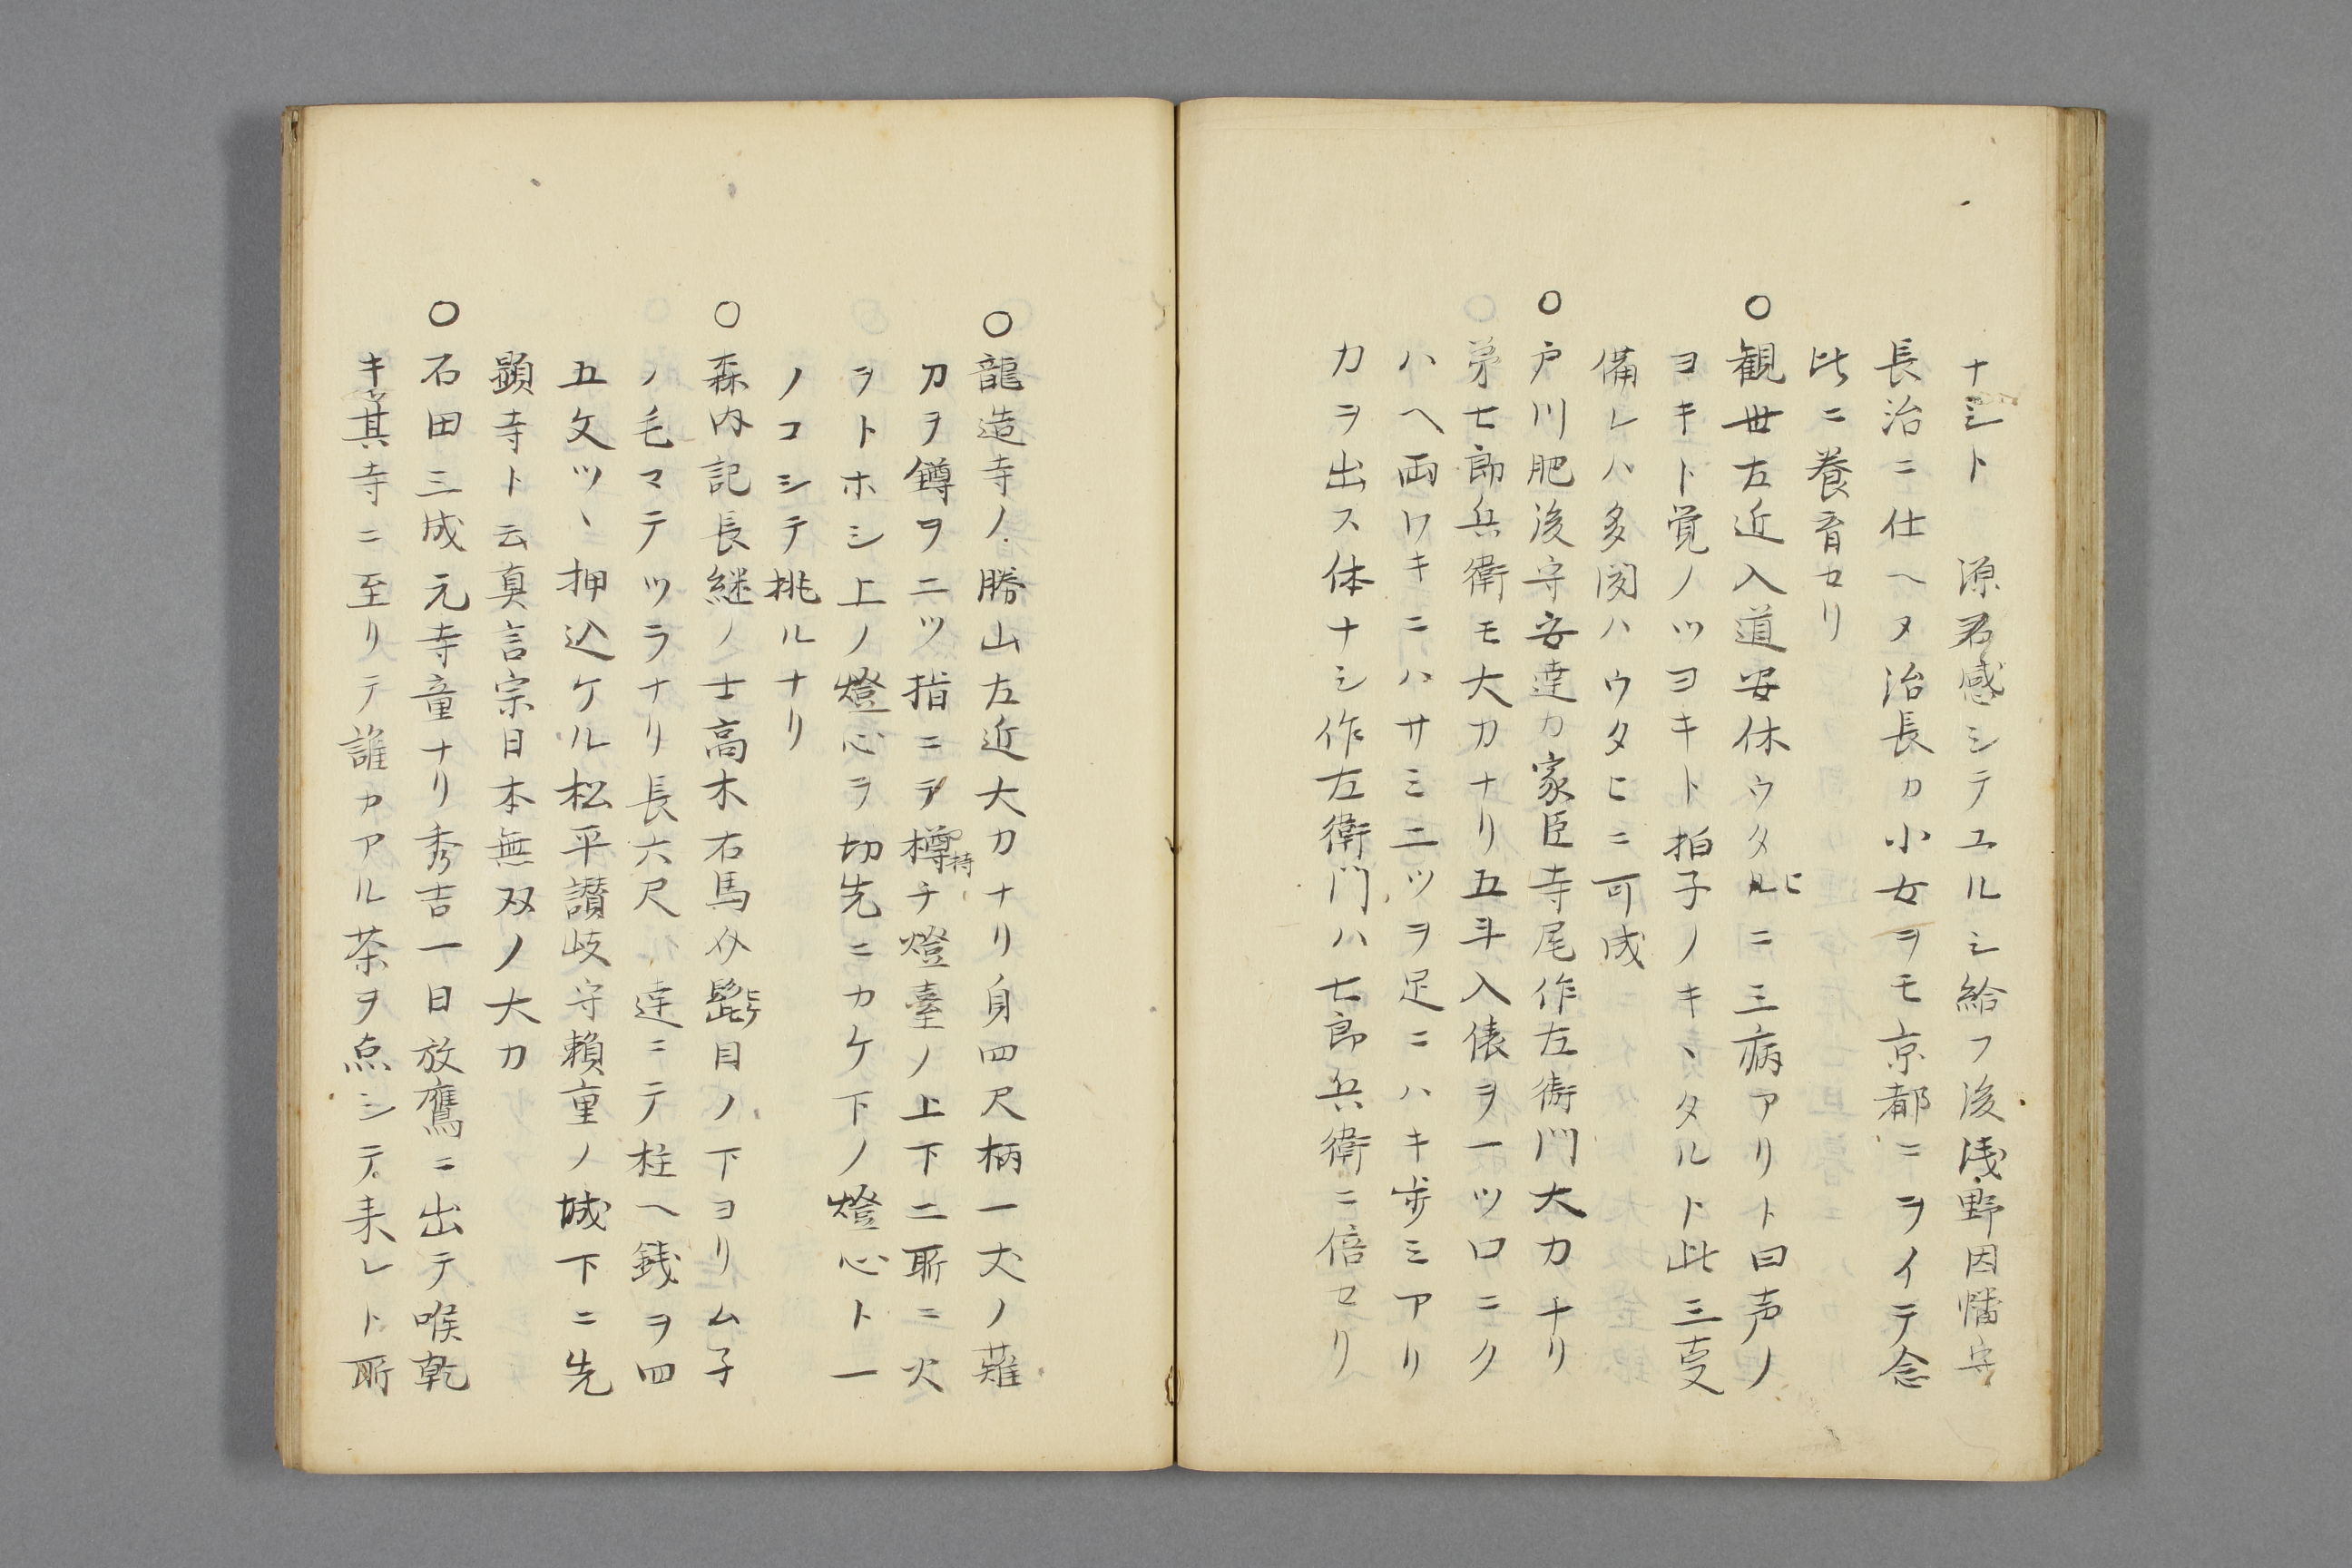 ナシト　源君感シテユルシ給フ後浅野因幡守
長治ニ仕ヘヌ治長カ小女ヲモ京都ニヲイテ念
比ニ養育セリ
○観世左近入道安休ウタヒニ三病アリト曰声ノ
ヨキト覚ノツヨキト拍子ノキヽタルト此三支
備レハ多閑ハウタヒニ可成
○戸川肥後守安達カ家臣寺尾作左衛門大力ナリ
弟七郎兵衛モ大力ナリ五斗入俵ヲ一ツ口ニク
ハヘ両ワキニハサミ二ツヲ足ニハキ歩ミアリ
力ヲ出ス体ナシ作左衛門ハ七郎兵衛ニ倍セリ
○龍造寺ノ勝山左近大力ナリ身四尺柄一丈ノ薙
刀ヲ鐏ヲ二ツ指ニテ持チ燈臺ノ上下二所ニ火
ヲトホシ上ノ燈心ヲ切先ニカケ下ノ燈心ト一
ノコシテ挑ルナリ
○森内記長継ノ士高木右馬介髭目ノ下ヨリム子
ノ毛マテツラナリ長六尺　達ニテ柱ヘ銭ヲ四
五文ツヽ押込ケル松平讃岐守頼重ノ城下ニ先
顕寺ト云真言宗日本無双ノ大力
○石田三成元寺童ナリ秀吉一日放鷹ニ出テ喉乾
キ其寺ニ至リテ誰カアル茶ヲ点シテ来レト所